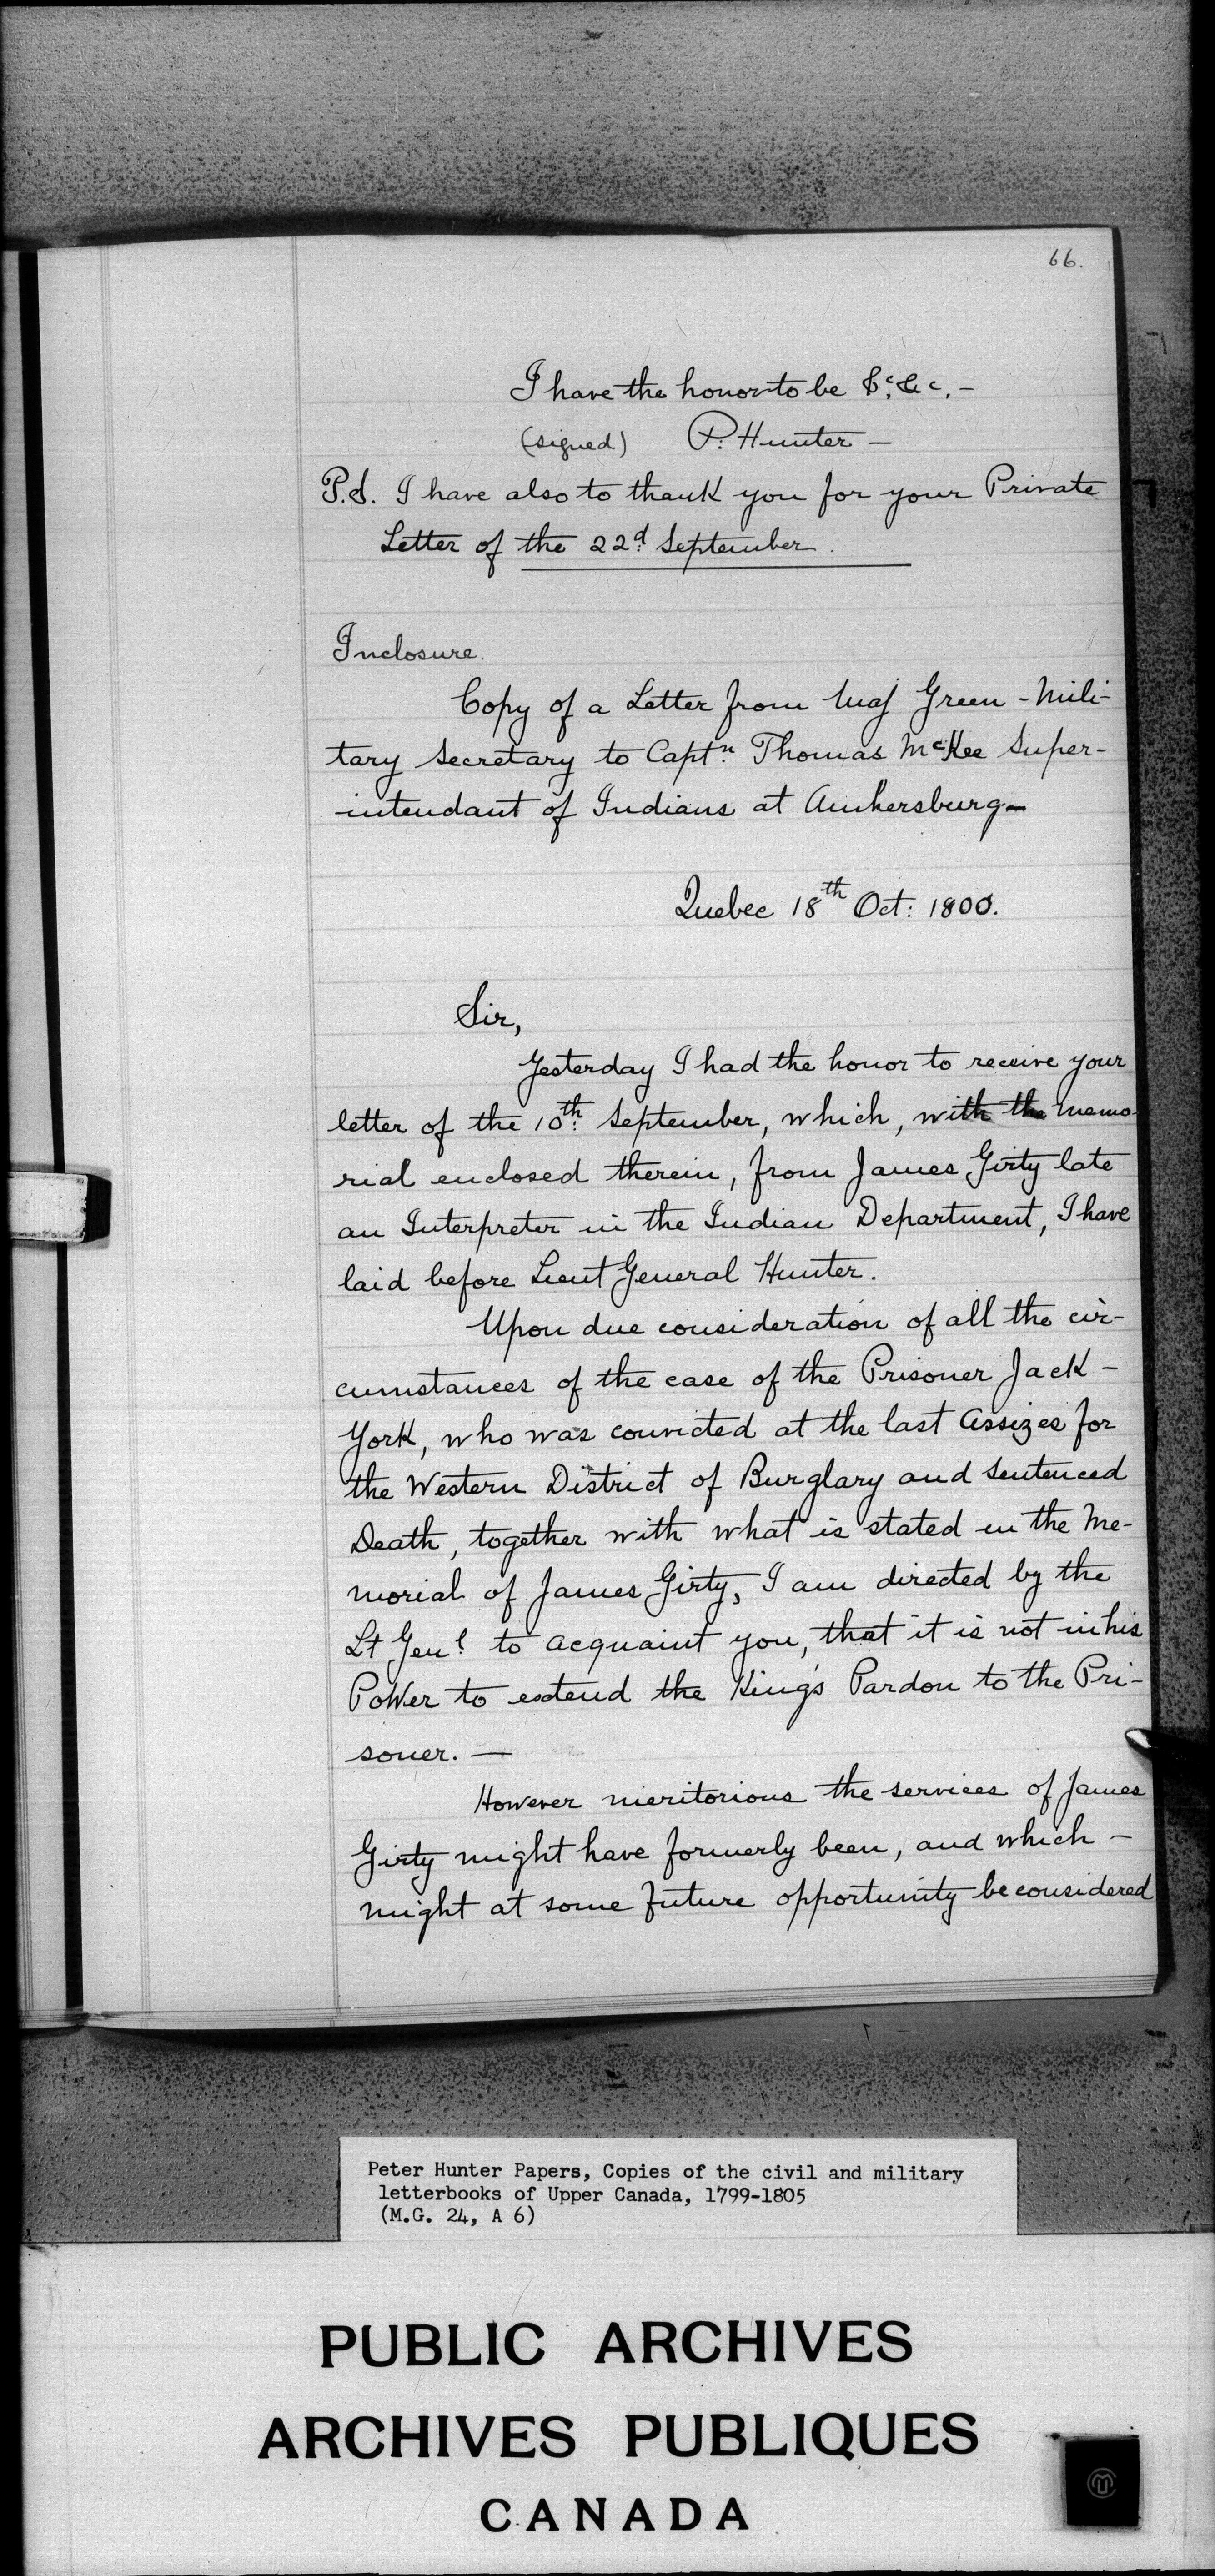 66.
I have the honor to be &c. &c. -
(signed) P. Hunter -
P.S. I have also to thank you for your Private
Letter of the 22d September.
Inclosure.
Copy of a Letter from Maj Green - Mili-
tary Secretary to Captn. Thomas McKee Super-
intendant of Indians at Amhersburg -
Quebec 18th Oct: 1800.
Sir,
Yesterday I had the honor to receive your
letter of the 10th September, which, with the memo
rial enclosed therein, from James Girty late
an Interpreter in the Indian Department, I have
laid before Lieut General Hunter.
Upon due consideration of all the cir-
cumstances of the case of the Prisoner Jack -
York, who was convicted at the last Assizes for
the Western District of Burglary and sentenced
Death, together with what is stated in the Me-
morial of James Girty, I am directed by the
Lt Genl to acquaint you, that it is not in his
Power to extend the King's Pardon to the Pri-
soner. -
However meritorious the services of James
Girty might have formerly been, and which -
might at some future opportunity be considered
Peter Hunter Papers, Copies of the civil and military
letterbooks of Upper Canada, 1799-1805
(M.G. 24, A 6)
PUBLIC ARCHIVES
ARCHIVES PUBLIQUES
CANADA